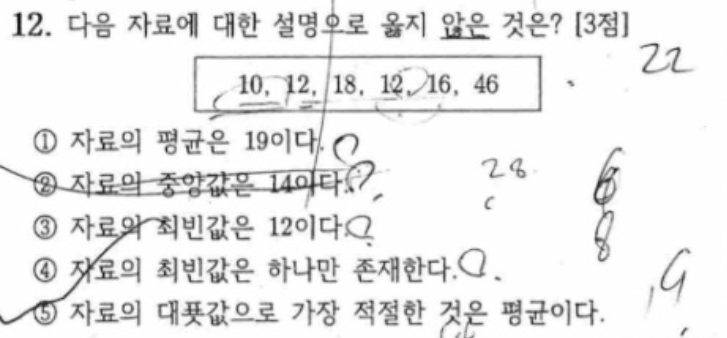 12. 다음 자료에 대한 설명으로 옳지 않은 것은? [3점]
22
10, 12, 18, 12, 16, 46
① 자료의 평균은 19이다.
28
② 자료의 중앙값은 14이다.
③ 자료의 최빈값은 12이다.
8
④ 자료의 최빈값은 하나만 존재한다.
⑤ 자료의 대푯값으로 가장 적절한 것은 평균이다.